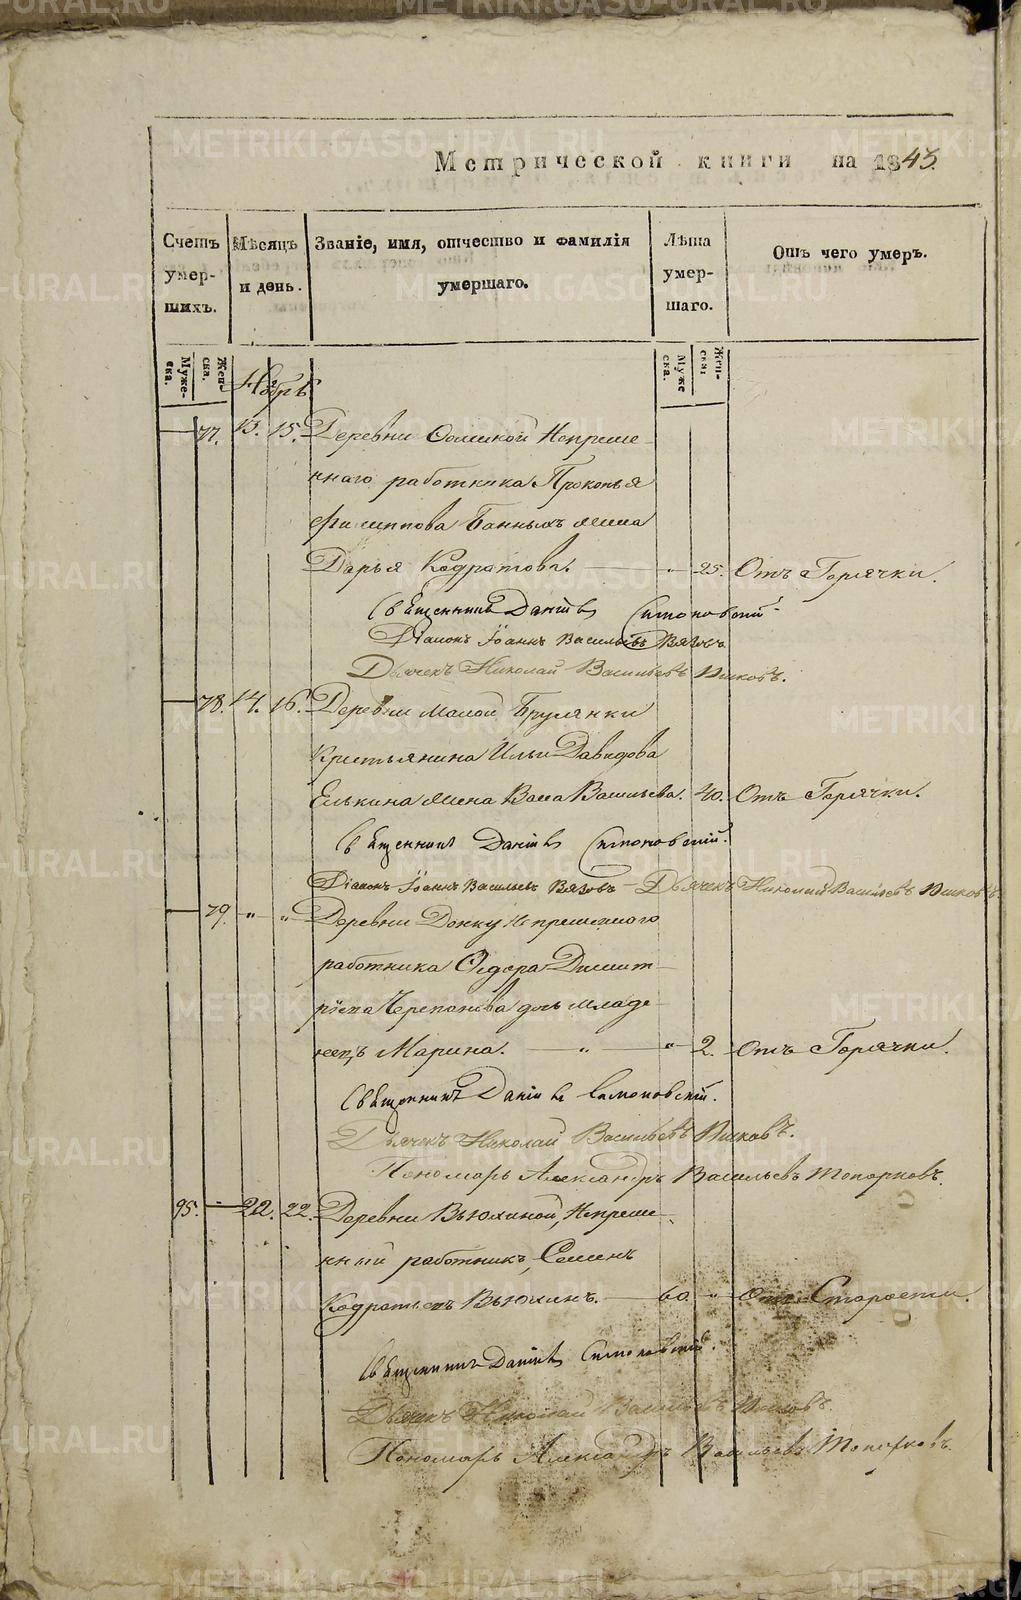 METRIKI.GASO-URAL.RU
Метрической книги на 1843.
Счетъ умер-шихъ.
Мѣсяцъ и день.
Званіе, имя, отчество и фамилія умершаго.
Лѣта умер-шаго.
Отъ чего умеръ.
Муже-ска.
Жен-ска.
Ноябрь
Муже ска.
Жен-ска.
77. 13. 15. Деревни Непреме-
ннаго работника Прокопья
Филиппова Банныхъ жена
Дарья Кодратова. — „ 25. Отъ Горячки.
Священникъ Даніилъ Симоновскій
Діаконъ Іоаннъ Васильевъ Вязовъ
Дьячекъ Николай Васильевъ
78. 14. 16. Деревни Малой Брусянки
Крестьянина Ильи Давидова
Елькина жена Васса Васильева. 40. Отъ Горячки.
Священникъ Даніилъ Симоновскій.
Діаконъ Іоаннъ Васильевъ Вязовъ — Дьячекъ Николай Васильевъ
79. „ „ Деревни непременнаго
работника Ѳедора Димит-
ріева Черепанова дчь младе-
нецъ Марина. — „ „ 2. Отъ Горячки.
Священникъ Даніилъ Симоновскій.
Дьячекъ Николай Васильевъ
Пономарь Александръ Васильевъ Топорковъ.
95. — 22. 22. Деревни Вьюхиной, Непреме-
нный работникъ, Семенъ
Кодратьевъ Вьюхинъ. — 60. „ Отъ Старости.
Священникъ Даніилъ Симоновскій.
Дьячекъ Николай Васильевъ
Пономарь Александръ Васильевъ Топорковъ.